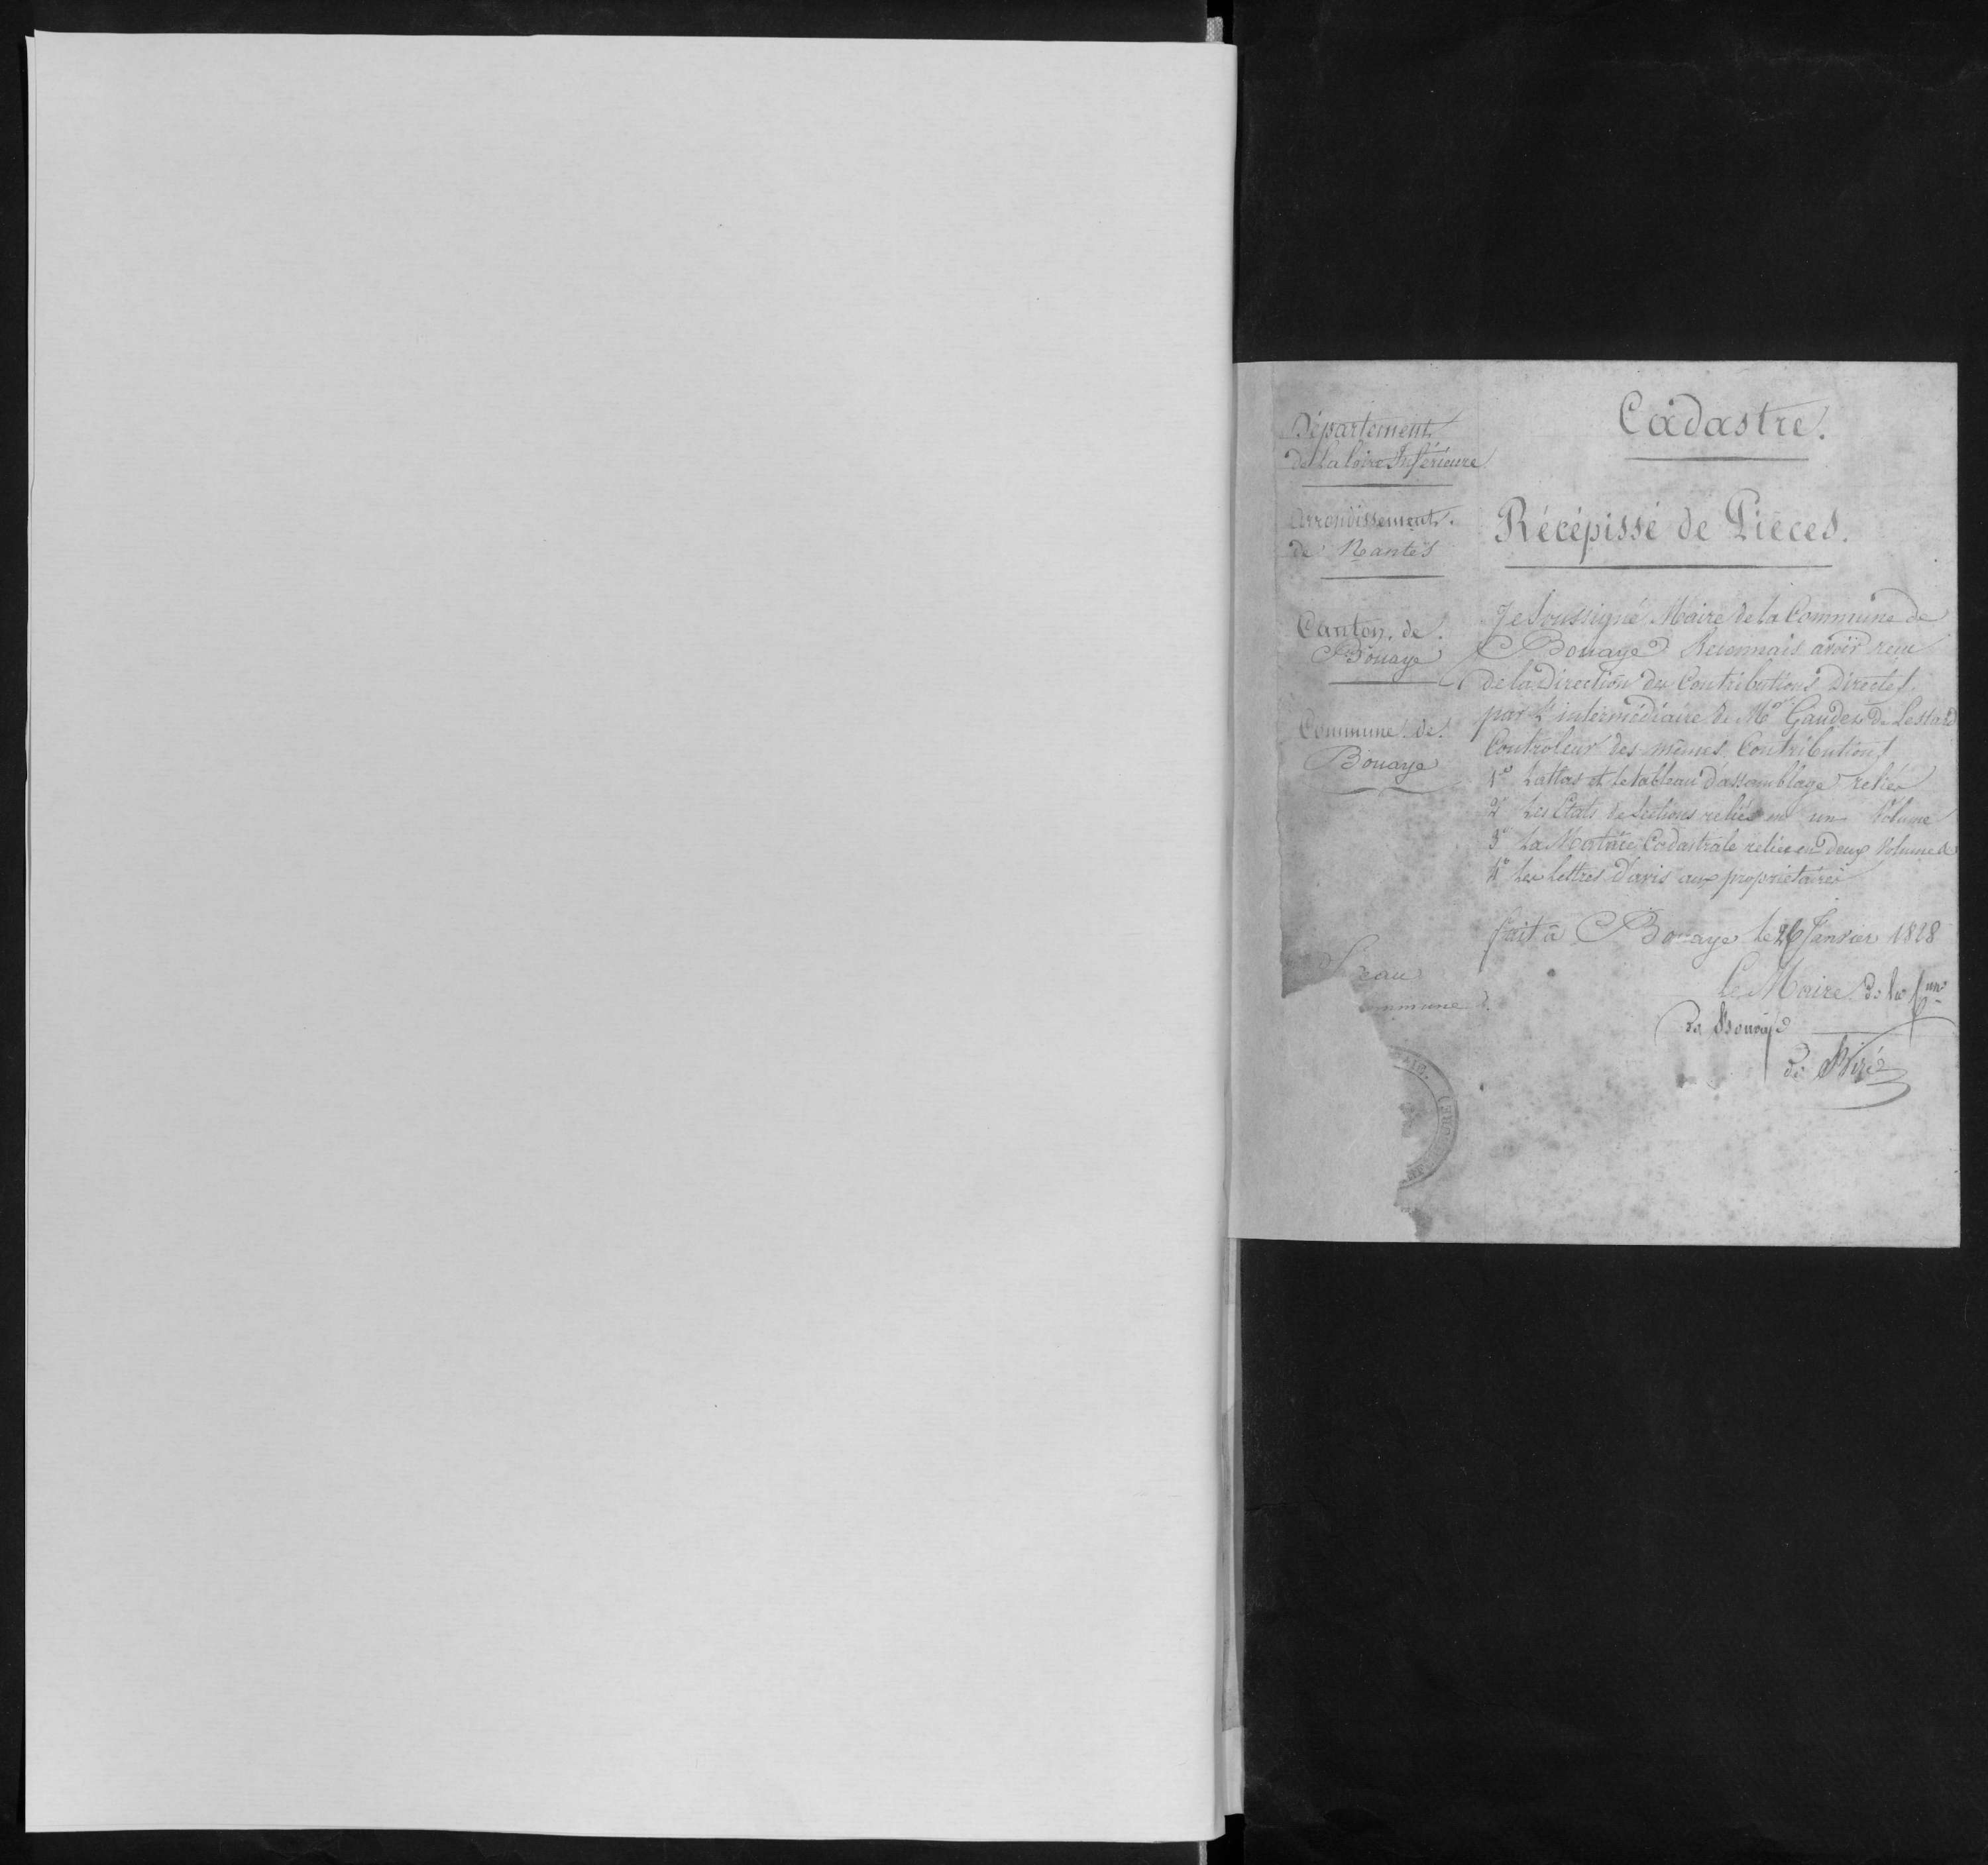 Département
de la loire Inférieure
Arrondissement
de Nantes
Canton de
Bouaye
Commune de
Bouaye
Sceau
ommune d
Cadastre.
Récépissé de Pièces.
Je Soussigné Maire de la Commune de
Bouaye Reconnais avoir reçu
de la Direction des Contributions Directes
par l'intermédiaire de Mr Gaudes de Lestard
Controleur des mêmes Contributions
1° Lattas et le tableau d'assemblage reliés
2° Les Etats de Sections reliés en un Volume
3° La Matrice Cadastrale reliée en deux Volumes
4° Les lettres d'avis aux propriétaires
fait à Bouaye le 26 Janvier 1828
le Maire de la Cune
de Bouaye
de Biré